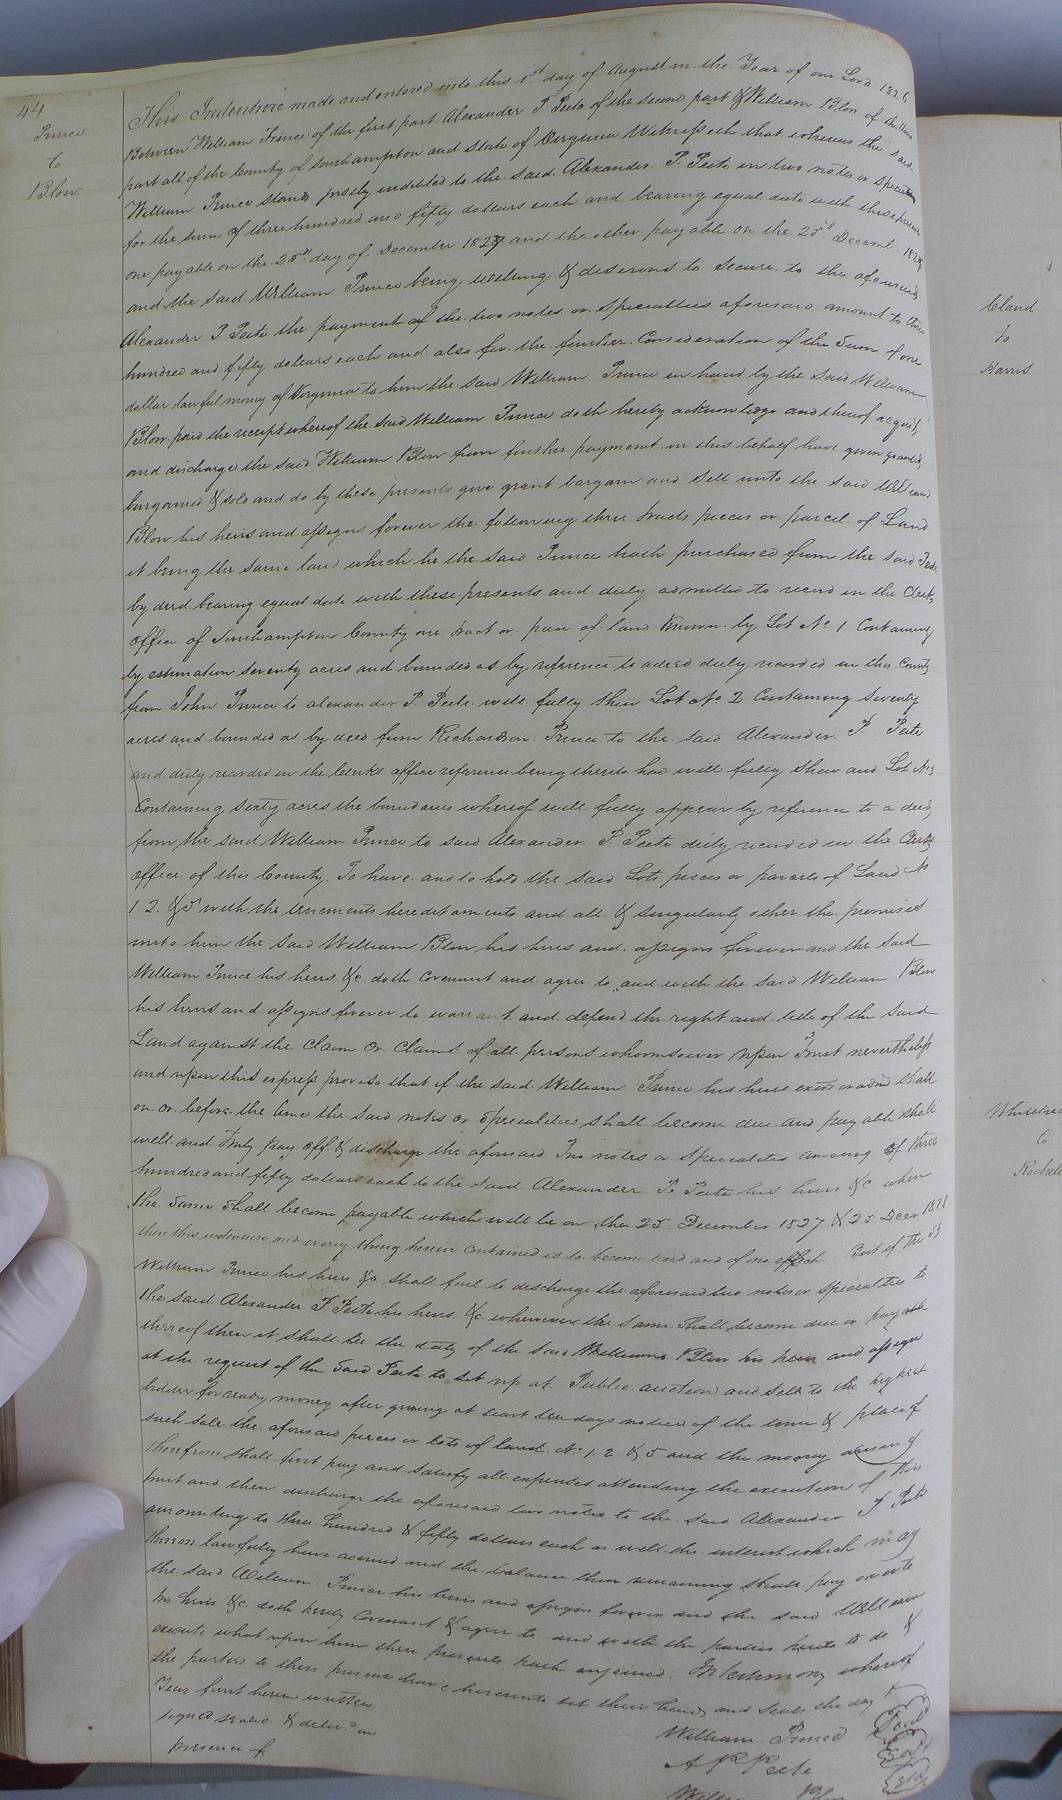 44
Prince
to
Blow
This Indenture made and entered into this 1st day of August in the Year of our Lord 1826
Between William Prince of the first part Alexander P Peete of the second part & William Blow of the third
part all of the County of Southampton and State of Virginia Witnesseth that whereas the said
William Prince stands justly indebted to the said Alexander P. Peete in two notes or specialties
for the sum of three hundred and fifty dollars each and bearing equal date with these presents
one payable on the 25th day of December 1827 and the other payable on the 25th Decemb. 1828
and the said William Prince being willing & desirous to secure to the aforesaid
Alexander P Peete the payment of the two notes or specialties aforesaid amount to three
hundred and fifty dollars each and also for the further Consideration of the Sum of one
dollar lawful money of Virginia to him the said William Prince in hand by the said William
Blow paid the receipt whereof the said William Prince doth hereby acknowledge and thereof acquit
and discharge the said William Blow from further payment in this behalf have given granted
bargained & sold and do by these presents give grant bargain and sell unto the said William
Blow his heirs and assigns forever the following three tracts pieces or parcel of Land
it being the same land which he the said Prince hath purchased from the said Peete
by deed bearing equal date with these presents and duly admitted to record in the Clerks
office of Southampton County one tract or piece of land Known by Lot No 1 Containing
by estimation seventy acres and bounded as by reference to a deed duly recorded in this County
from John Prince to alexander P. Peete will fully shew Lot No 2 Containing seventy
acres and bounded as by deed from Richardson Prince to the said Alexander P Peete
and duly recorded in the Clerks office reference being thereto had will fully shew and Lot No 5
Containing sixty acres the boundaries whereof will fully appear by reference to a deed
from the said William Prince to said Alexander P Peete duly recorded in the Clerks
office of this County. To have and to hold the said Lots pieces or parcels of Land No
1. 2. & 5 with the tenements hereditaments and all & singularly other the premises
unto him the said William Blow his heirs and assigns forever and the said
William Prince his heirs &c doth Covenant and agree to and with the said William Blow
his heirs and assigns forever to warrant and defend the right and title of the said
Land against the Claim or Claims of all persons whomsoever upon Trust nevertheless
and upon this express proviso that if the said William Prince his heirs exors or adm shall
on or before the time the said notes or specialties shall become due and payable shall
well and truly pay off & discharge the aforesaid Two notes or specialties amoung of three
hundred and fifty dollars each to the said Alexander P. Peete his heirs &c when
the same shall become payable which will be on the 25 December 1827 & 25 Decr 1828
then this indenture and every thing herein contained is to become void and of no effect But if the sd
William Prince his heirs &c shall fail to discharge the aforesaid two notes or specialties to
the said Alexander P Peete his heirs &c whenever the same shall become due or payable
thereof then it shall be the duty of the said William Blow his heirs and assigns
at the request of the Said Peete to set up at Public auction and sell to the highest
bidder for ready money after giving at least ten days notice of the time & place of
such sale the aforesaid pieces or lots of land No 1. 2 & 5 and the money arising
therefrom shall first pay and satisfy all expenses attending the execution of this
trust and then discharge the aforesaid two notes to the said Alexander P Peete
amounting to three hundred & fifty dollars each as well the interest which may
thereon lawfully have accrued and the balance then remaining shall pay over to
the said William Prince his heirs and assigns forever and the said William
his heirs &c. doth hereby Covenant & agree to and with the parties hereto to do &
execute what upon him these presents hath enjoined. In testimony whereof
the parties to these presents have hereunto set their hands and seals the day &
Year first herein written
signed seald & delivd in
presence of
William Prince Seal
A P Peete Seal
William Blow Seal
Cland
to
Harris
to